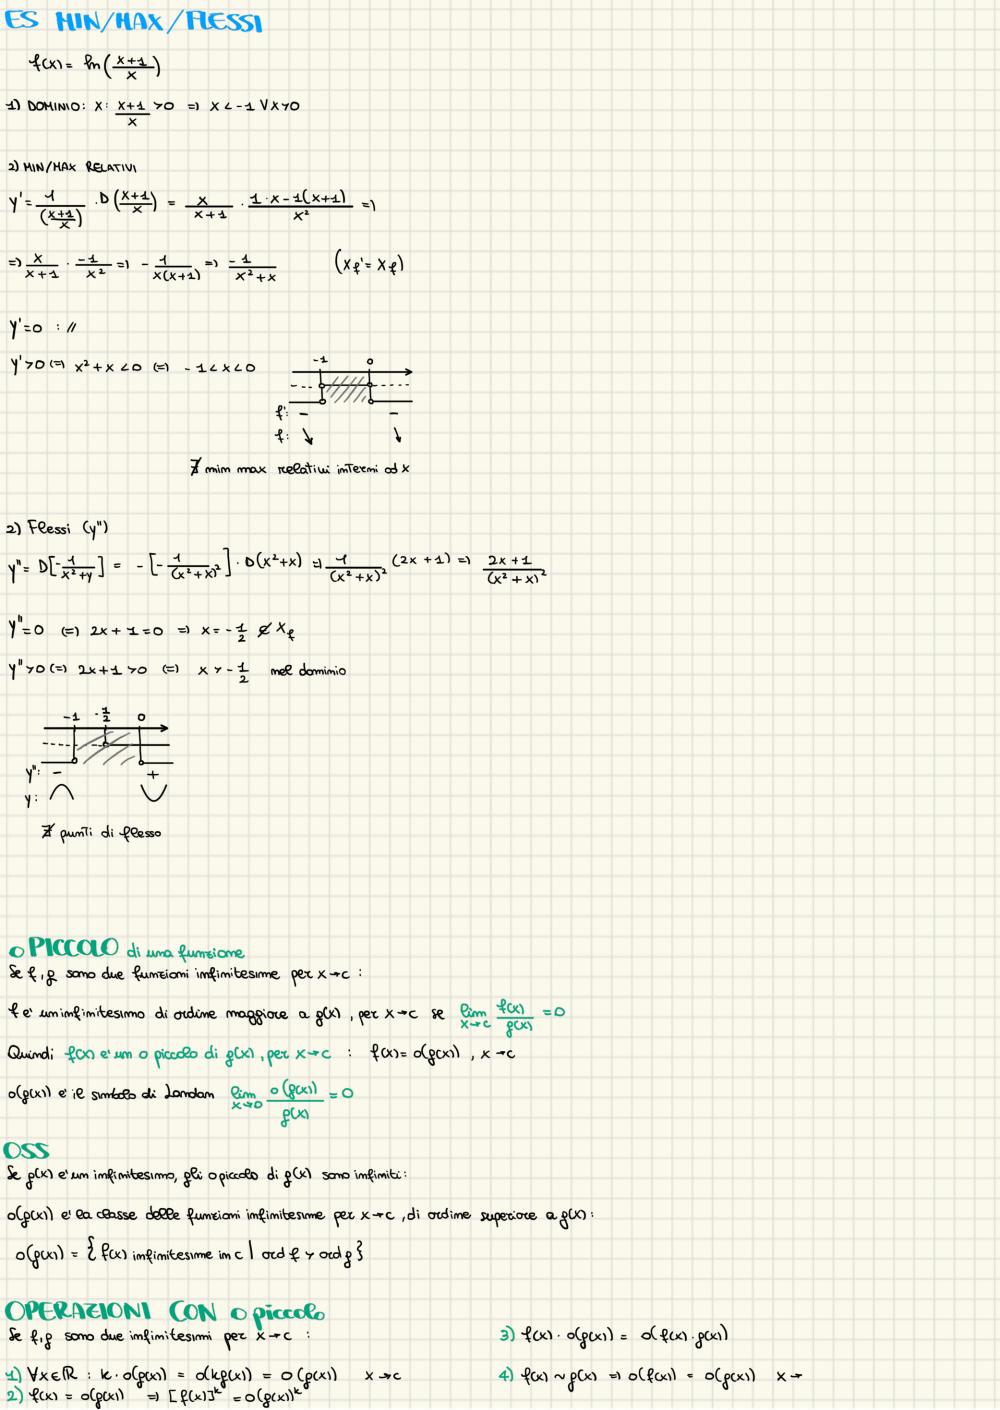 ES MIN/MAX/FLESSI
f(x) = ln((x+1)/x)
1) DOMINIO: x: (x+1)/x >0 => x<-1 V x>0
2) MIN/MAX RELATIVI
y' = 1/((x+1)/x) · D((x+1)/x) = x/(x+1) · (1·x-1(x+1))/x² =>
=> x/(x+1) · -1/x² => - 1/(x(x+1)) => -1/(x²+x) (Xf' = Xf)
y'=0 : //
y'>0 <=> x²+x<0 <=> -1<x<0
-1 0
f': - -
f: ↘ ↘
∄ min max relativi interni ad x
2) Flessi (y'')
y'' = D[-1/(x²+y)] = -[-1/(x²+x)²] · D(x²+x) => 1/(x²+x)² (2x+1) => (2x+1)/(x²+x)²
y''=0 <=> 2x+1=0 => x=-1/2 ∉ Xf
y''>0 <=> 2x+1>0 <=> x>-1/2 nel dominio
-1 -1/2 0
y'': - +
y: ∩ ∪
∄ punti di flesso
o PICCOLO di una funzione
Se f,g sono due funzioni infinitesime per x→c :
f e' un infinitesimo di ordine maggiore a g(x), per x→c se lim x→c f(x)/g(x) = 0
Quindi f(x) e' un o piccolo di g(x), per x→c : f(x)= o(g(x)) , x→c
o(g(x)) e' il simbolo di Landau lim x→0 o(g(x))/g(x) = 0
OSS
Se g(x) e' un infinitesimo, gli o piccolo di g(x) sono infiniti:
o(g(x)) e' la classe delle funzioni infinitesime per x→c, di ordine superiore a g(x):
o(g(x)) = { f(x) infinitesime in c | ord f > ord g }
OPERAZIONI CON o piccolo
Se f,g sono due infinitesimi per x→c :
1) ∀x∈ℝ : k·o(g(x)) = o(kg(x)) = o(g(x)) x→c
2) f(x) = o(g(x)) => [f(x)]^k = o(g(x))^k
3) f(x)·o(g(x)) = o(f(x)·g(x))
4) f(x) ~ g(x) => o(f(x)) = o(g(x)) x→